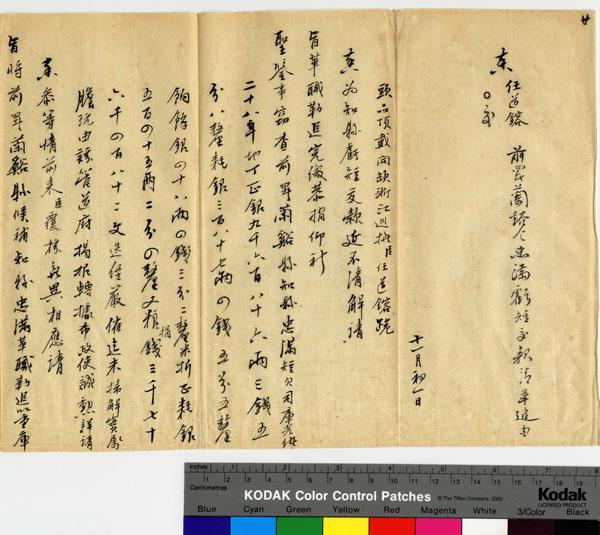 廿
奏
任道鎔
前署蘭谿令忠滿虧短交款請革追由
十一月初一日
頭品頂戴開缺浙江巡撫臣任道鎔跪
奏為知縣虧短交款延不清解請
旨革職勒追完繳恭摺仰祈
聖鑒事竊查前署蘭谿縣知縣忠滿短欠司庫光緒
二十八年地丁正銀九千六百八十六兩三錢五
分八釐耗銀三百八十七兩四錢五分五釐
餉餘銀四十八兩四錢三分二釐米折正耗銀
五百四十五兩二分四釐又捐錢三千七十
六千四百八十二文迭經嚴催迄未掃解實屬
膽玩由該管道府揭報轉據布政使誠勳詳請
奏參等情前來臣覆核無異相應請
旨將前署蘭谿縣候補知縣忠滿革職勒追
inches
Centimetres
KODAK Color Control Patches
© The Tiffen Company, 2000
Kodak
LICENSED PRODUCT
Blue Cyan Green Yellow Red Magenta White 3/Color Black